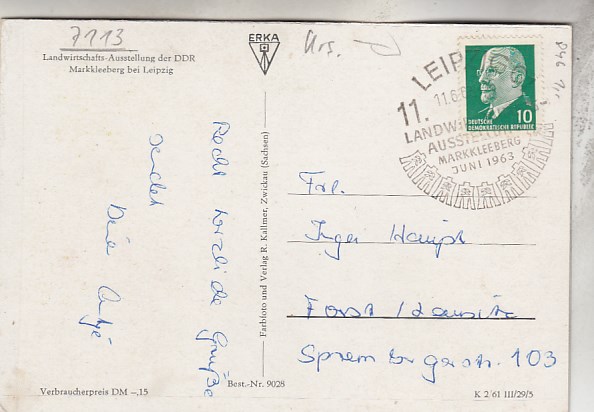 7113
Landwirtschafts-Ausstellung der DDR
Markkleeberg bei Leipzig
ERKA
Recht herzliche Grüße
sendet
Deine Antje
Farbfoto und Verlag R. Kallmer, Zwickau (Sachsen)
LEIP
11.6.6
11.
LANDW
AUSSTE
MARKKLEEBERG
JUNI 1963
DEUTSCHE
DEMOKRATISCHE REPUBLIK
10
Frl.
Inger Haupt
Forst / Lausitz
Spremberger str. 103
Verbraucherpreis DM -,15
Best.-Nr. 9028
K 2 61 III/29/5